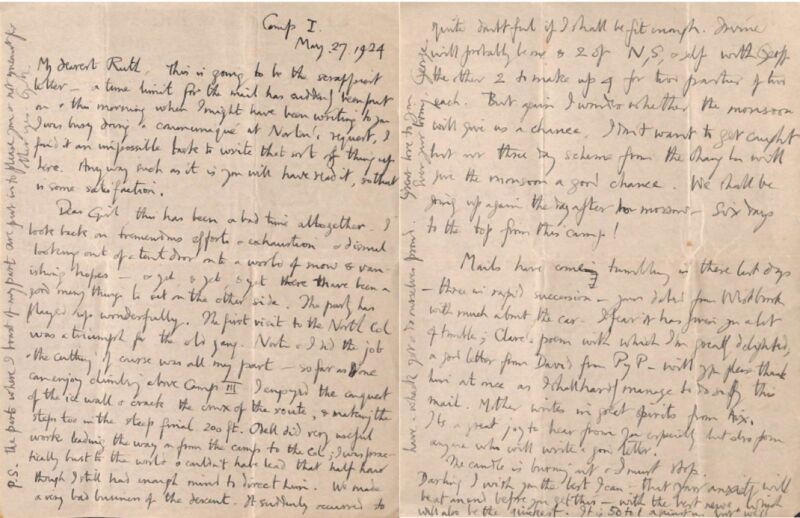 Camp I.
May. 27. 1924
My dearest Ruth, This is going to be the scrappiest
letter – a time limit for the mail has suddenly been put
on & this morning when I might have been writing to you
I was busy doing a communiqué at Norton's request, I
find it an impossible task to write that sort of thing up
here. Anyway such as it is you will have read it, so that
is some satisfaction.
Dear Girl this has been a bad time altogether. I
look back on tremendous efforts & exhaustion & dismal
looking out of a tent door onto a world of snow & van-
ishing hopes – & yet, & yet, & yet there have been a
good many things to set on the other side. The party has
played up wonderfully. The first visit to the North Col
was a triumph for the old gang. Norton & I did the job
& the cutting of course was all my part – so far as one
can enjoy climbing above Camp III I enjoyed the conquest
of the ice wall & crack, the crux of the route, & making the
steps too in the steep final 200 ft. Odell did very useful
work leading the way on from the camp to the Col; I was prac-
tically bust to the world & couldn't have lead that half hour
though I still had enough mind to direct him. We made
a very bad business of the descent. It suddenly occurred to
P.S. The parts where I boast of my part are put in to please you & not meant for
other eyes. G.M.
quite doubtful if I shall be fit enough. Irvine
will probably be one & 2 of N, S, & self with Geoff
the other 2 to make up 4 for two parties of two
each. But again I wonder whether the monsoon
will give us a chance. I don't want to get caught
but our three day scheme from the Chang La will
give the monsoon a good chance. We shall be
going up again the day after tomorrow – Six days
to the top from this camp!
Mails have coming tumbling in these last days
– three in rapid succession – yours dated from Westbrook
with much about the car. I fear it has given you a lot
of trouble; Clare's poem with which I'm greatly delighted,
a good letter from David from PyP – will you please thank
him at once as I shall hardly manage to do so by this
mail. Mother writes in great spirits from Aix.
It's a great joy to hear from you especially but also from
anyone who will write a good letter.
The candle is burning out & I must stop.
Darling I wish you the best I can – that your anxiety will
be at an end before you get this – with the best news. Which
will also be the quickest. It is 50 to 1 against us but we'll
have a whack yet & do ourselves proud. Great love to you
Ever your loving, George